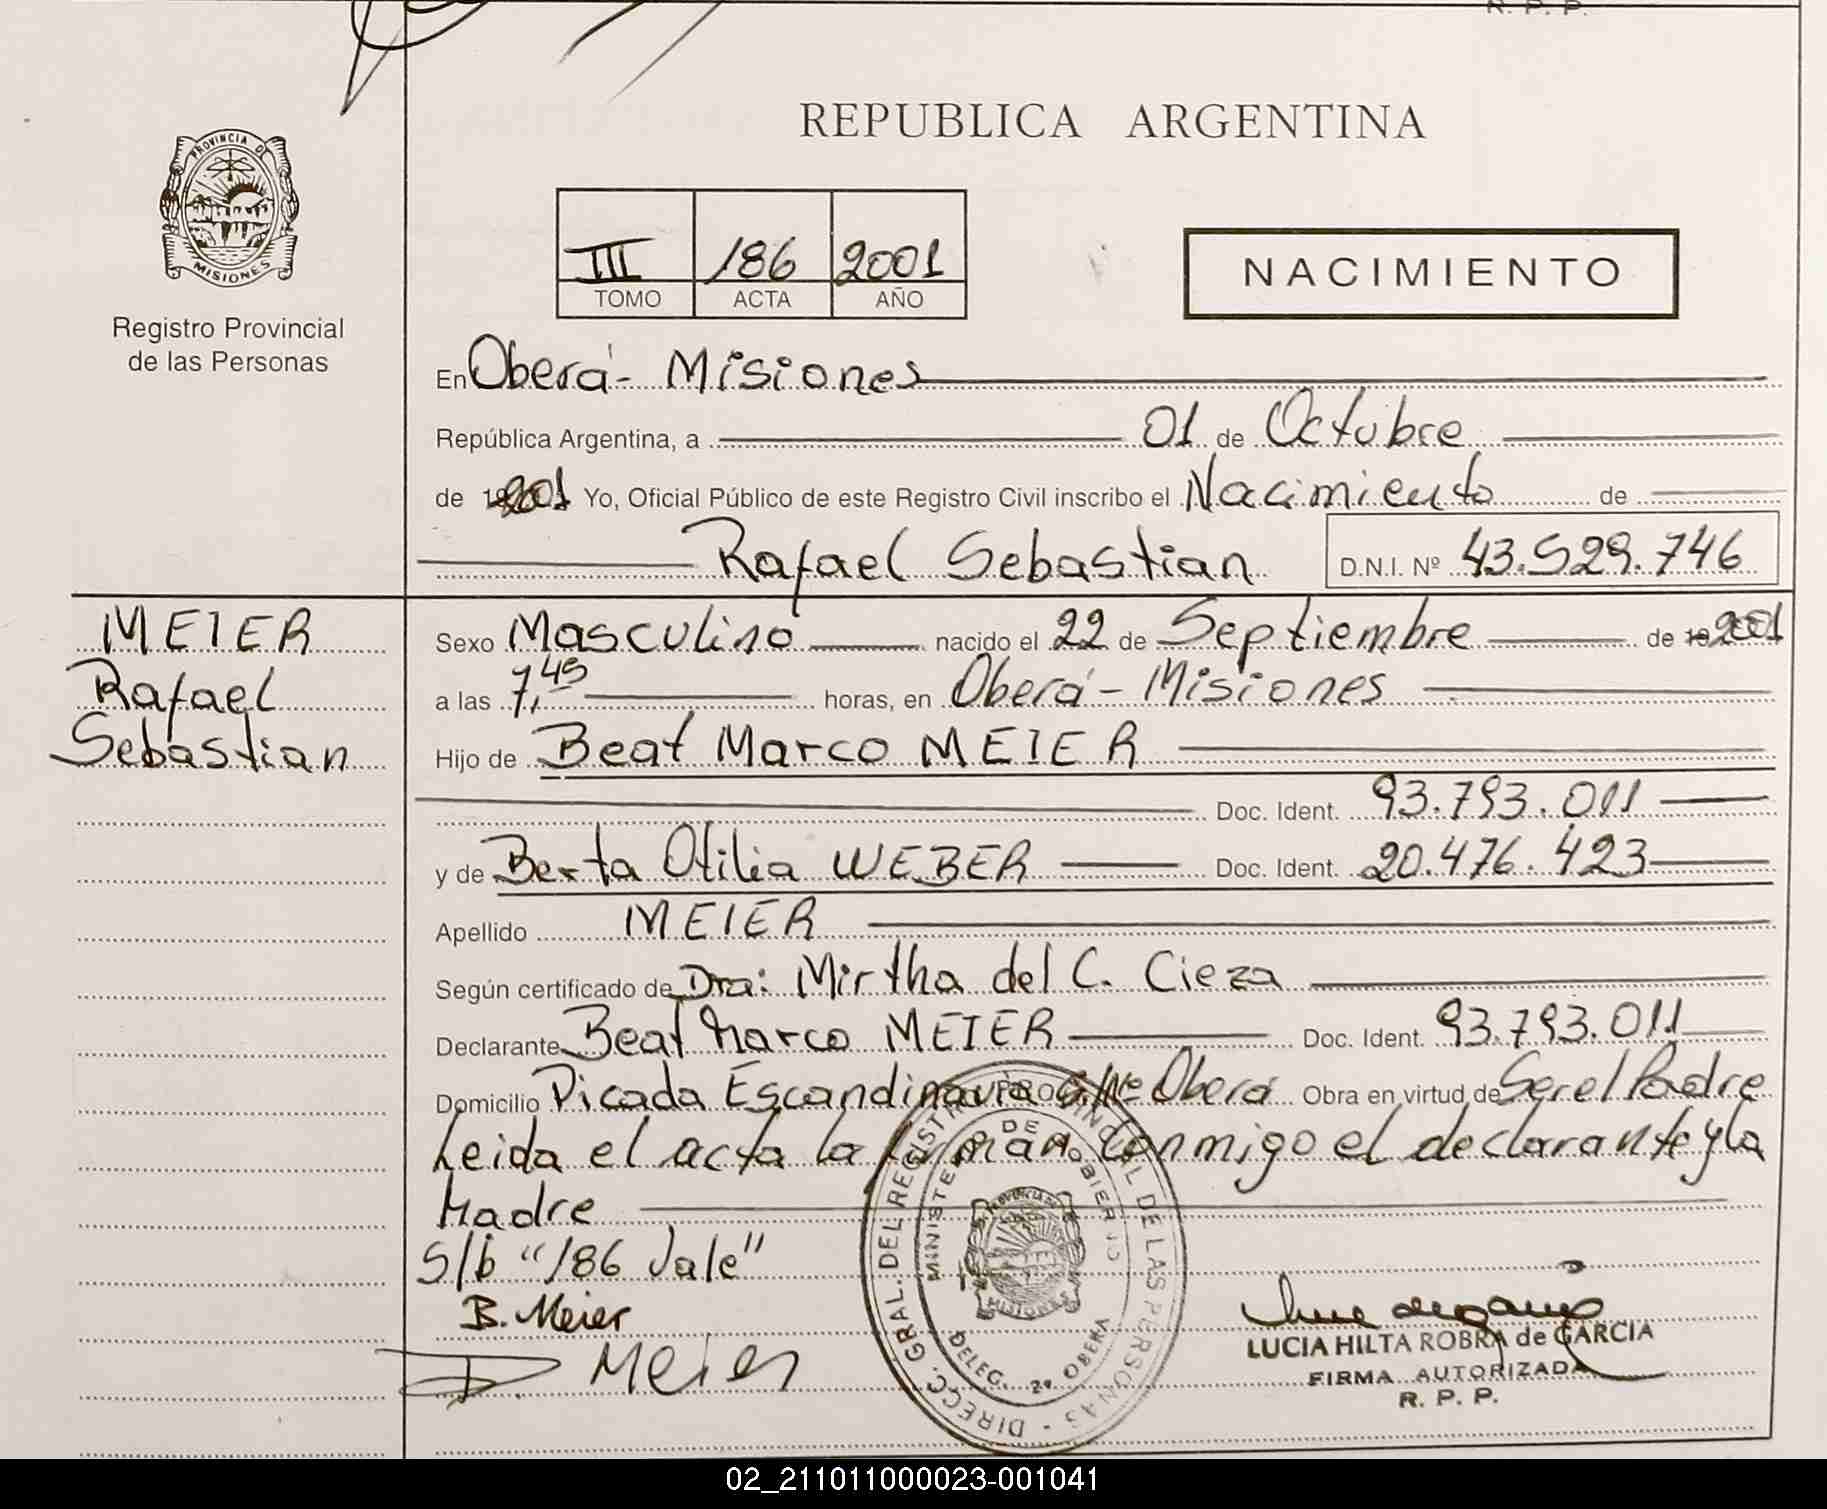 R. P. P.
REPUBLICA ARGENTINA
PROVINCIA DE
MISIONES
Registro Provincial
de las Personas
III 186 2001
TOMO ACTA AÑO
NACIMIENTO
En Oberá - Misiones
República Argentina, a 01 de Octubre
de 2001 Yo, Oficial Público de este Registro Civil inscribo el Nacimiento de
Rafael Sebastian D.N.I. Nº 43.529.746
MEIER
Rafael
Sebastian
Sexo Masculino nacido el 22 de Septiembre de 2001
a las 7,45 horas, en Oberá - Misiones
Hijo de Beat Marco MEIER
Doc. Ident. 93.793.011
y de Berta Otilia WEBER Doc. Ident. 20.476.423
Apellido MEIER
Según certificado de Dra: Mirtha del C. Cieza
Declarante Beat Marco MEIER Doc. Ident. 93.793.011
Domicilio Picada Escandinavia S/Nº Oberá Obra en virtud de Ser el Padre
Leida el acta la firman conmigo el declarante y la
Madre
S/b "186 Vale"
B. Meier
Meier
DIRECC. GRAL. DEL REGISTRO PROVINCIAL DE LAS PERSONAS -
MINISTERIO DE GOBIERNO
MISIONES
DELEG. 2ª OBERA
LUCIA HILTA ROBRA de GARCIA
FIRMA AUTORIZADA
R. P. P.
02_211011000023-001041